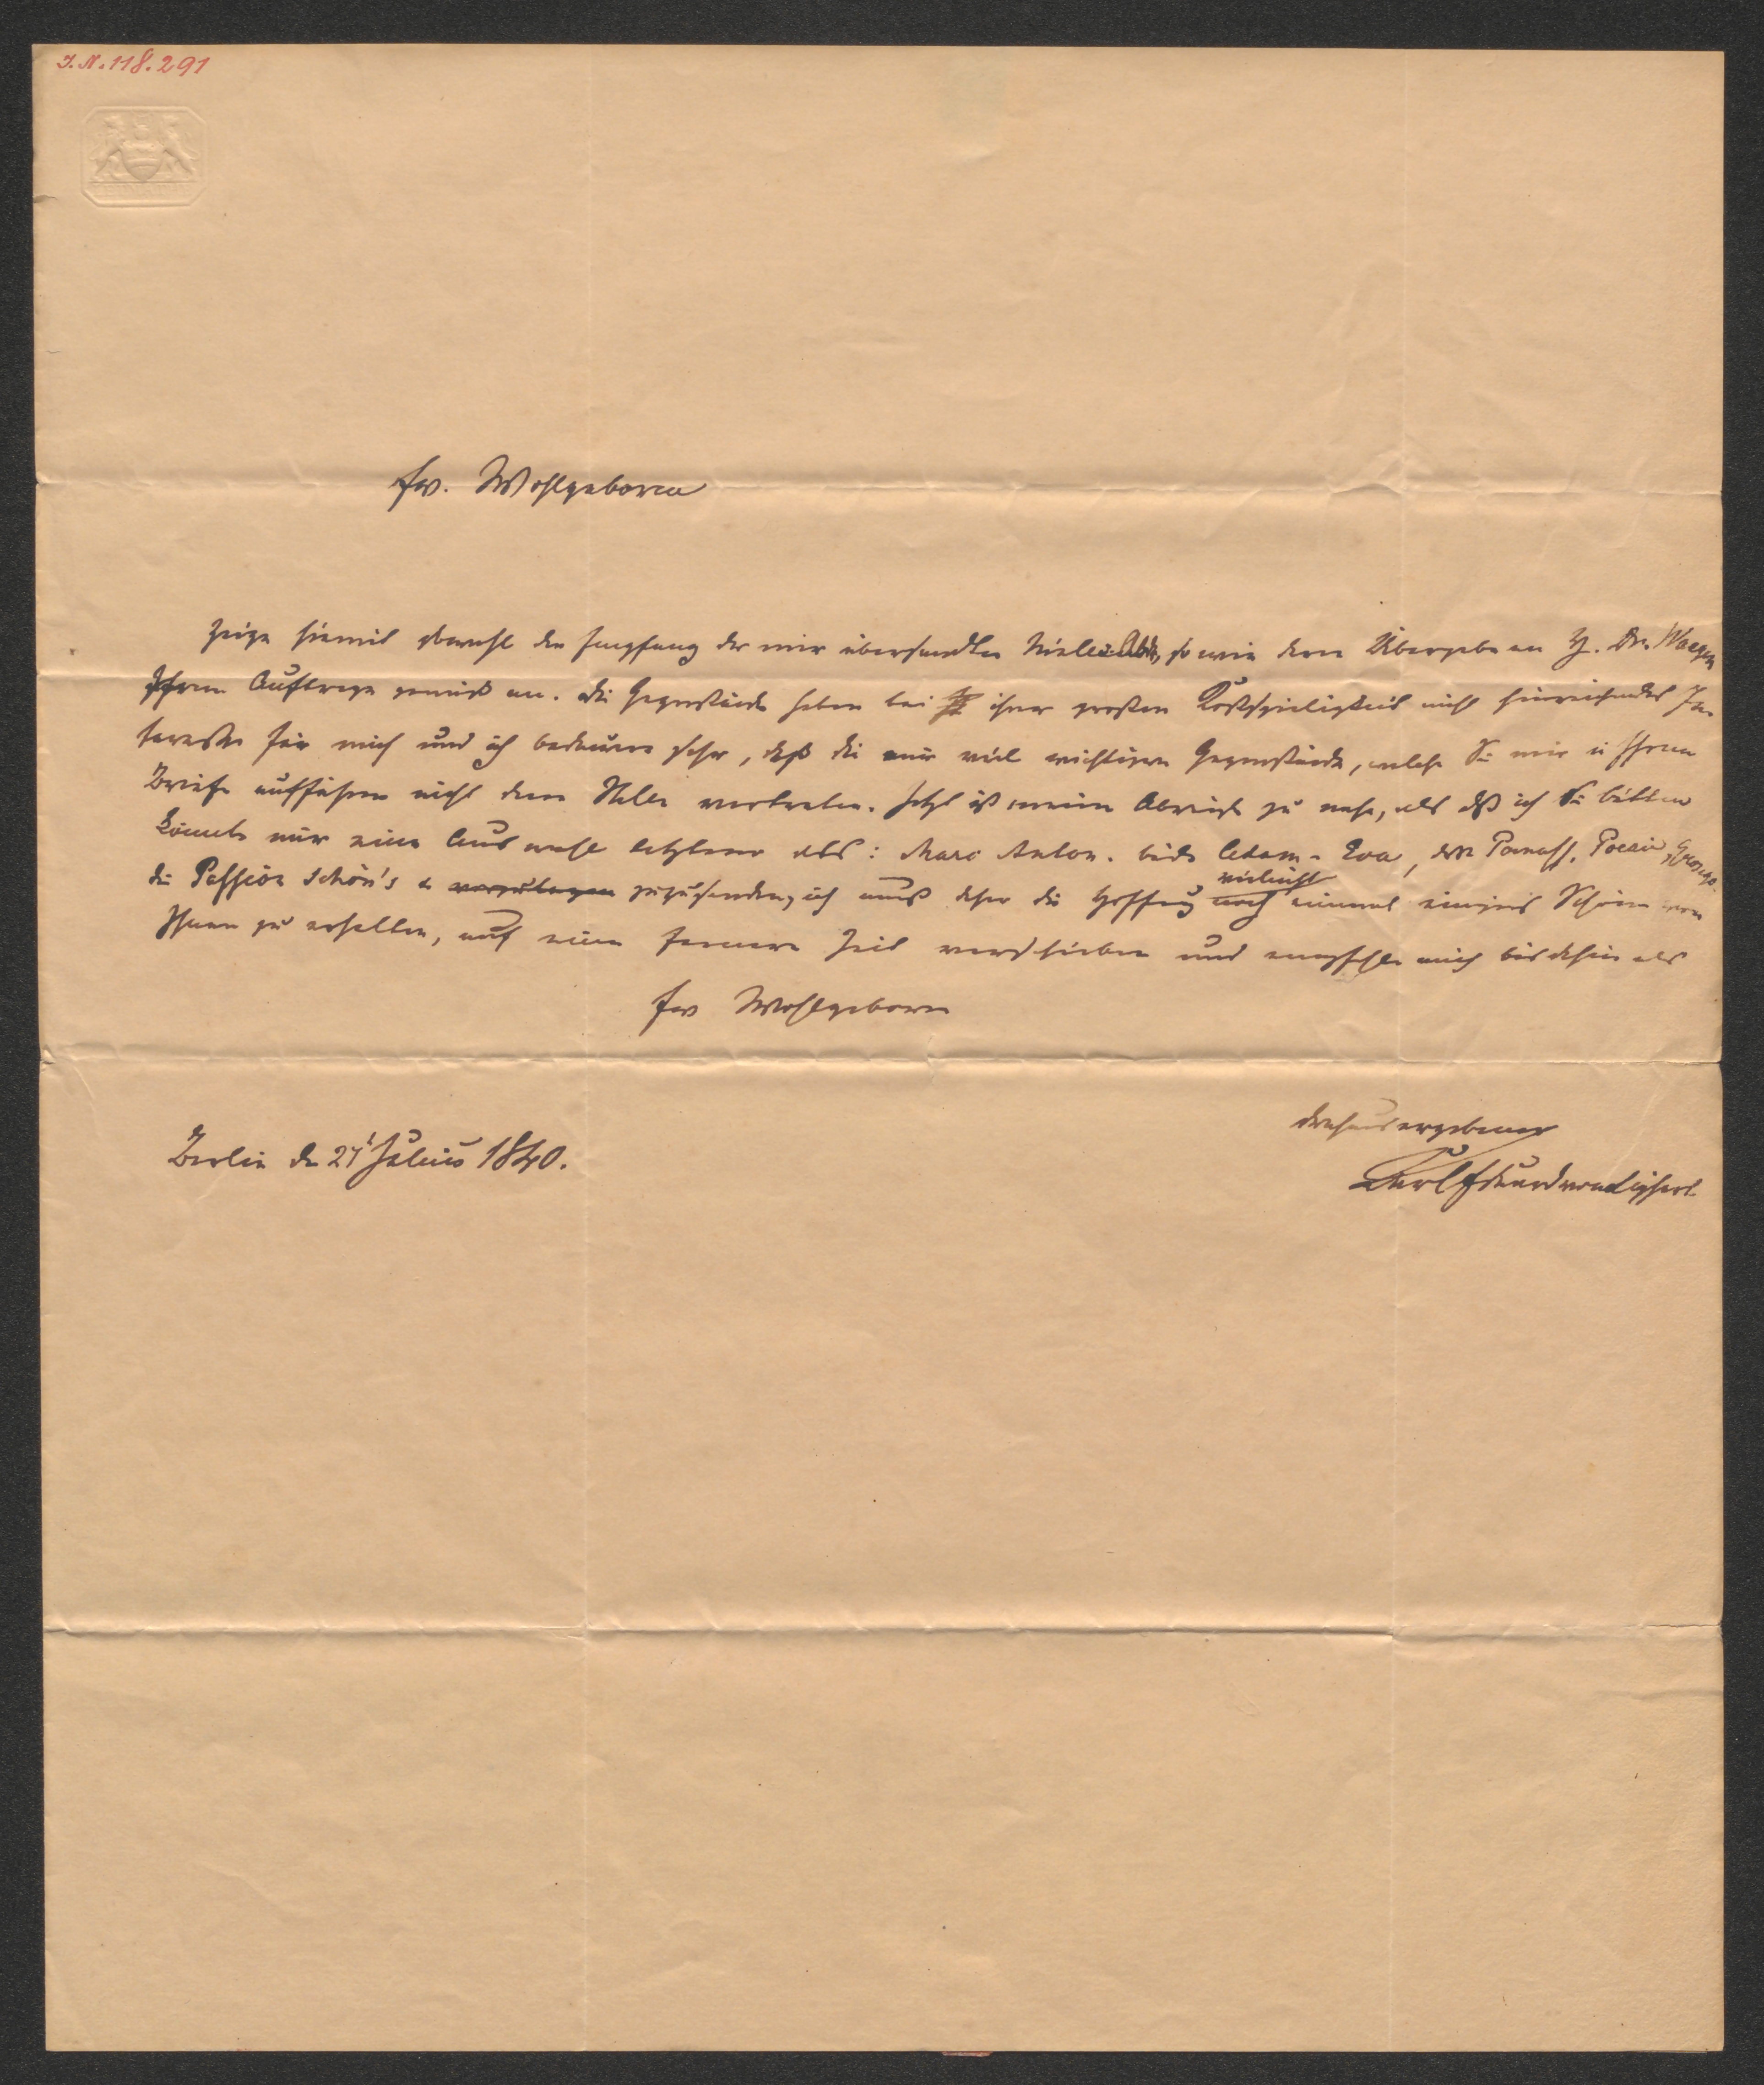 I.N. 118.291
Ew. Wohlgeboren
zeige hiemit sowohl den Empfang der mir übersandten so wie deren Übergabe an H. Dr. Waagen
Ihrem Auftrage gemäß an. Die Gegenstände haben bei ihrer großen Kostspieligkeit nicht hinreichendes In
teresse für mich und ich bedaure sehr, daß die mir viel wichtigern Gegenstände, welche Sie mir in Ihrem
Briefe aufführen nicht deren Stelle vertreten. Jetzt ist meine Abreise zu nahe, als daß ich Sie bitten
könnte mir eine Auswahl letzterer als: Marc Anton. beide Adam u Eva, den Parnass, Poesie,
die Passion Schön's zuzusenden, ich muß daher die Hoffnung vieleicht einmal einiges Schöne von
Ihnen zu erhalten, auf eine fernere Zeit verschieben und empfehle mich bis dahin als
Ew Wohlgeboren
ergebener
Berlin den Julius 1840.
Carl Eduard von Liphart